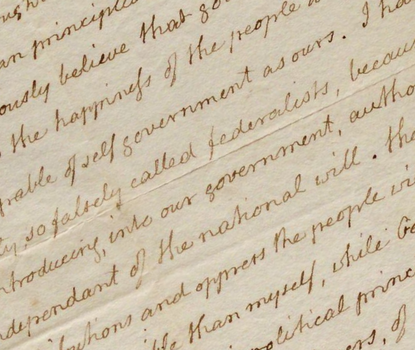 an principl
ously believe that go
the happiness of the people a
pable of self government as ours. I ha
ly so falsely called federalists, becau
ntroducing, into our government, autho
ndependant of the national will. the
utions and oppress the people wi
than myself, while
olitical princ
ers, of